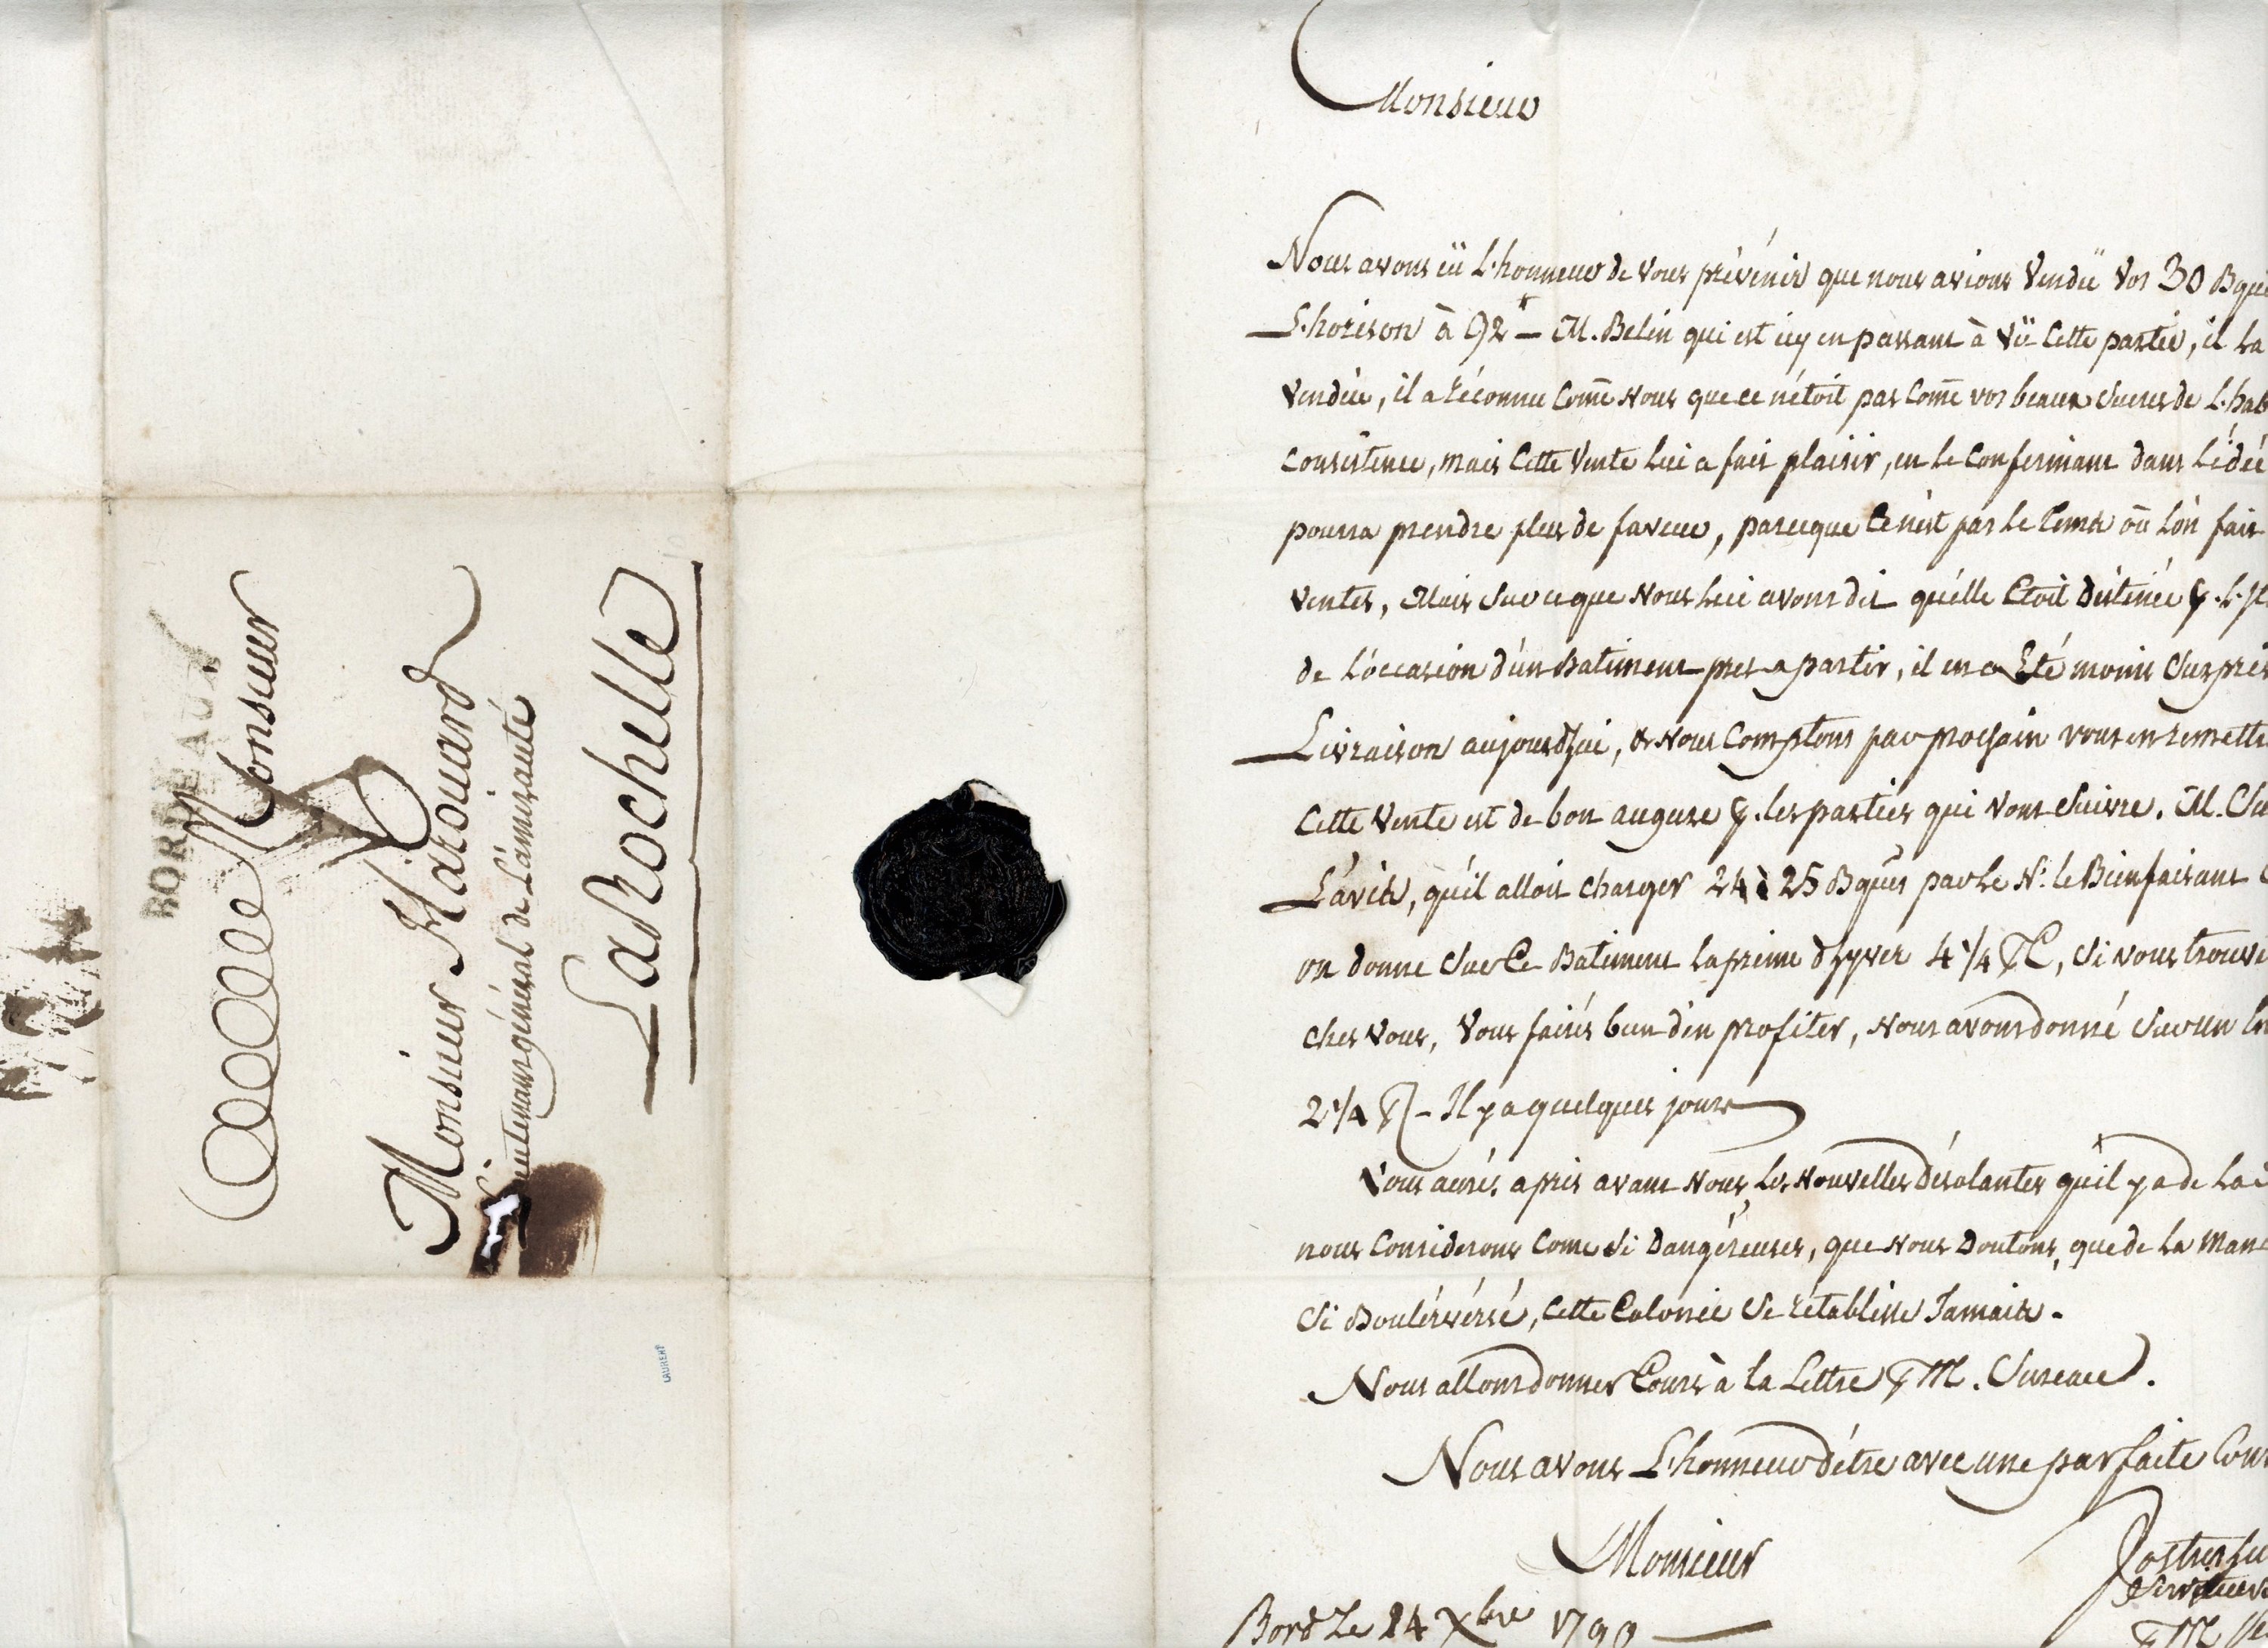 BORDEAUX
Monsieur
Monsieur Harouard
Lieutenant général de L'amirauté
LaRochelle
LAURENT
Monsieur
Nous avons eü L'honneur de vous prévenir que nous avions Vendü Vos 30 Bques
L'horison à 92 ₶ — M. Belin qui est icy en passant à Vü Cette partie, il La
Vendüe, il a réconnu Come nous que ce n'étoit pas Come vos beaux Sucres de L'hab
Consistence, mais Cette Vente Lui a fait plaisir, en Le Confermant dans L'idée
pourra prendre plus de faveur, parceque Ce n'est pas Le tems où L'on fait
Ventes, Mais Sur ce que nous Lui avons dit qu'élle Etoit Déstinée p. L.
de L'occasion d'un Batiment pres a partir, il en a Eté moins Surpris
Livraison aujourdhui, & nous Comptons par prochain vous en remettre
Cette Vente est de bon augure p. les parties qui Vont Suivre. M.
L'avis, qu'il alloit charger 24 à 25 Bques par Le N.e le Bienfaisant
on donne Sur Ce Batiment La prime d'hyver 4 1/4 %, Si vous trouvé
ches vous, Vous fairés bien d'en profiter, nous avons donné Sur un
2 1/4 % – Il y a quelques jours
Vous aurés apris avant nous, Les nouvelles désolantes qu'il y a de La
nous Considerons Come Si Dangéreuses, que nous Doutons, que de La mani
Si Boulérversé, Cette Colonie Se rétablisse Jamais.
Nous allons donner Cours à la Lettre p M. Sureau.
Nous avons L'honneur d'être avec une parfaite Con
Monsieur
Vos très hu
Serviteurs
Bord Le 24 Xbre 1790